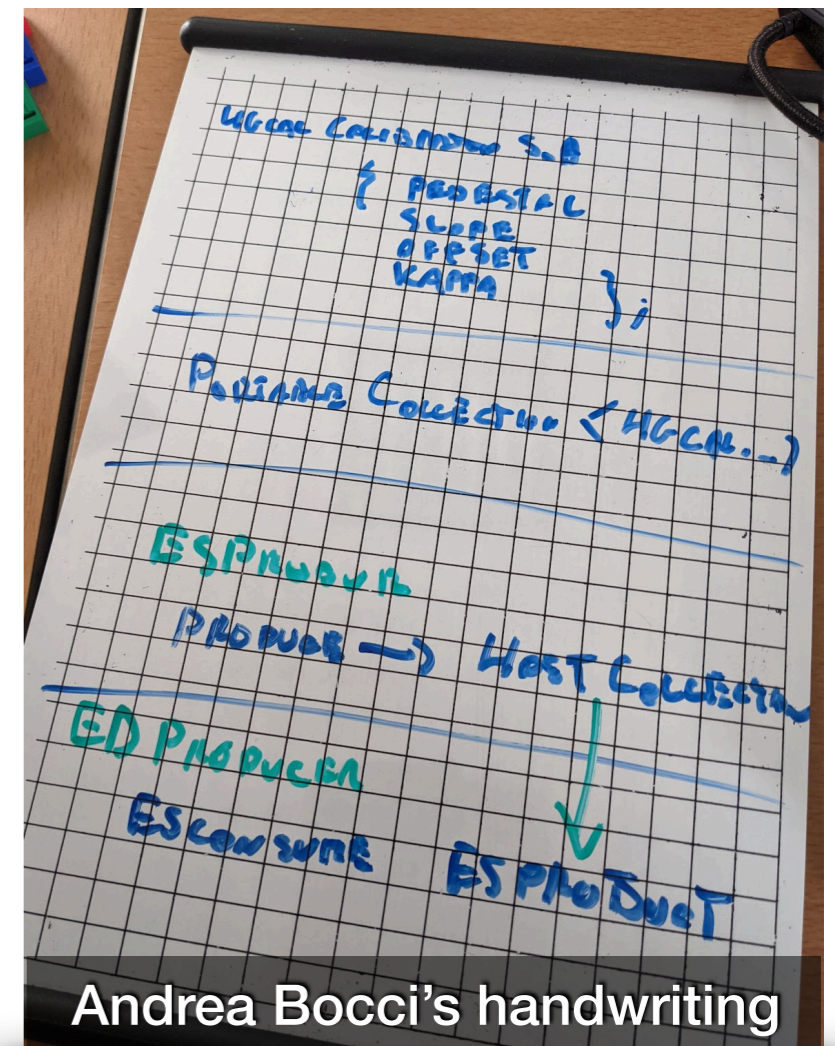 HGCAL CALIBRATION SOA
{ PEDESTAL
SLOPE
OFFSET
KAPPA
};
PORTABLE COLLECTION <HGCAL...>
ESPRODUCER
PRODUCE → HOST COLLECTION
ED PRODUCER
ESCONSUME ESPRODUCT
Andrea Bocci’s handwriting